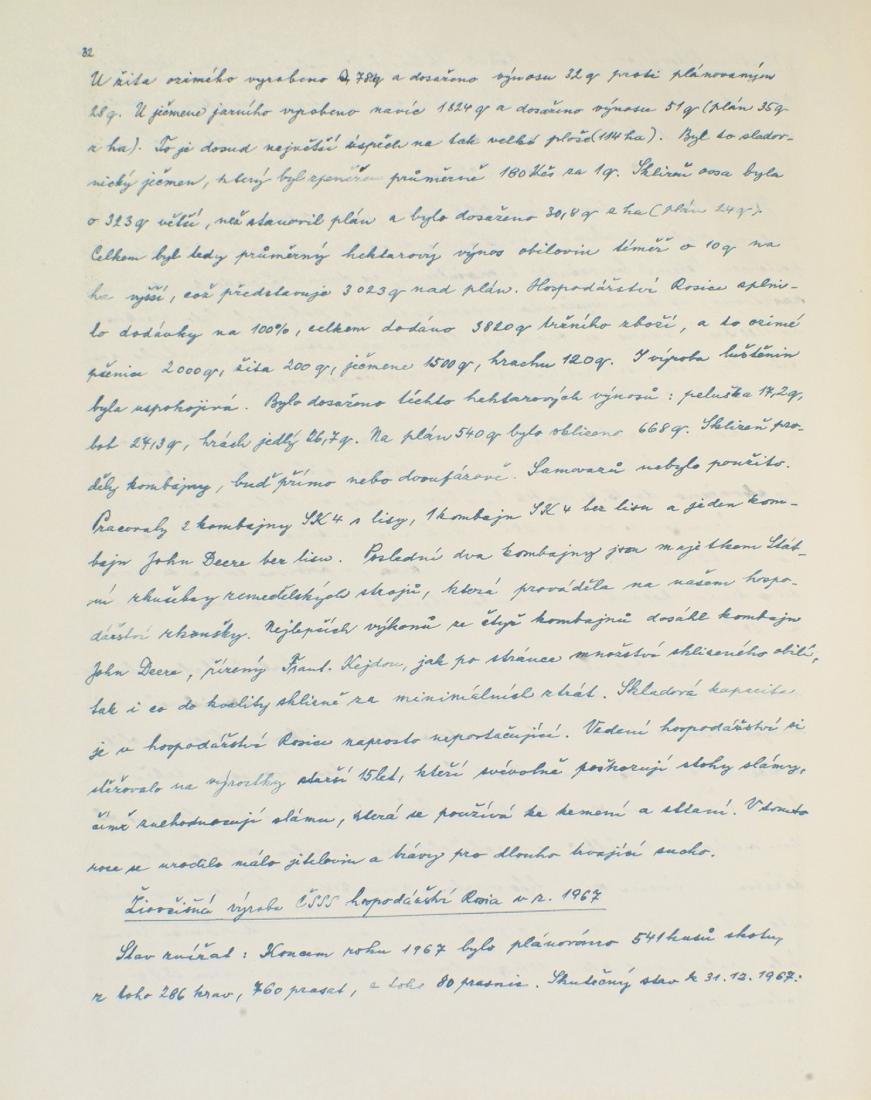 32
U žita ozimého vyrobeno 784q a dosaženo výnosu 32 q proti plánovaným
28 q. U ječmene jarního vyrobeno navíc 1824 q a dosaženo výnosu 51 q (plán 35 q
z ha). To je dosud největší úspěch na tak velké ploše (114 ha). Byl to sladov-
nický ječmen, který byl zpeněžen průměrně 180 Kčs za 1 q. Sklizeň ovsa byla
o 323 q větší, než stanovil plán a bylo dosaženo 30,8 q z ha (plán 24 q).
Celkem byl tedy průměrný hektarový výnos obilovin téměř o 10 q na
ha vyšší, což představuje 3 023 q nad plán. Hospodářství Rosice splni-
lo dodávky na 100%, celkem dodáno 3820 q tržního zboží, a to ozimé
pšenice 2 000 q, žita 200 q, ječmene 1500 q, hrachu 120 q. I výroba luštěnin
byla uspokojivá. Bylo dosaženo těchto hektarových výnosů: peluška 17,2 q,
bob 24,3 q, hrách jedlý 26,7 q. Na plán 540 q bylo sklizeno 668 q. Sklizeň pro-
děly kombajny, buď přímo nebo dvoufázově. Samovazů nebylo použito.
Pracovaly 2 kombajny SK 4 s lisy, 1 kombajn SK 4 bez lisu a jeden kom-
bajn John Deere bez lisu. Poslední dva kombajny jsou majetkem Stát-
ní zkušebny zemědělských strojů, která prováděla na našem hospo-
dářství zkoušky. Nejlepších výkonů ze čtyř kombajnů dosáhl kombajn
John Deere, řízený Frant. Kejdou, jak po stránce množství sklizeného obilí,
tak i co do kvality sklizně za minimálních ztrát. Skladová kapacita
je v hospodářství Rosice naprosto nepostačující. Vedení hospodářství si
stěžovalo na výrostky starší 15 let, kteří svévolně poškozují stohy slámy,
čímž znehodnocují slámu, která se používá ke krmení a stlaní. V tomto
roce se urodilo málo jetelovin a trávy pro dlouho trvající sucho.
Živočišná výroba ČSSS hospodářství Rosice v r. 1967
Stav zvířat: Koncem roku 1967 bylo plánováno 541 kusů skotu,
z toho 286 krav, 760 prasat, z toho 80 prasnic. Skutečný stav k 31. 12. 1967: